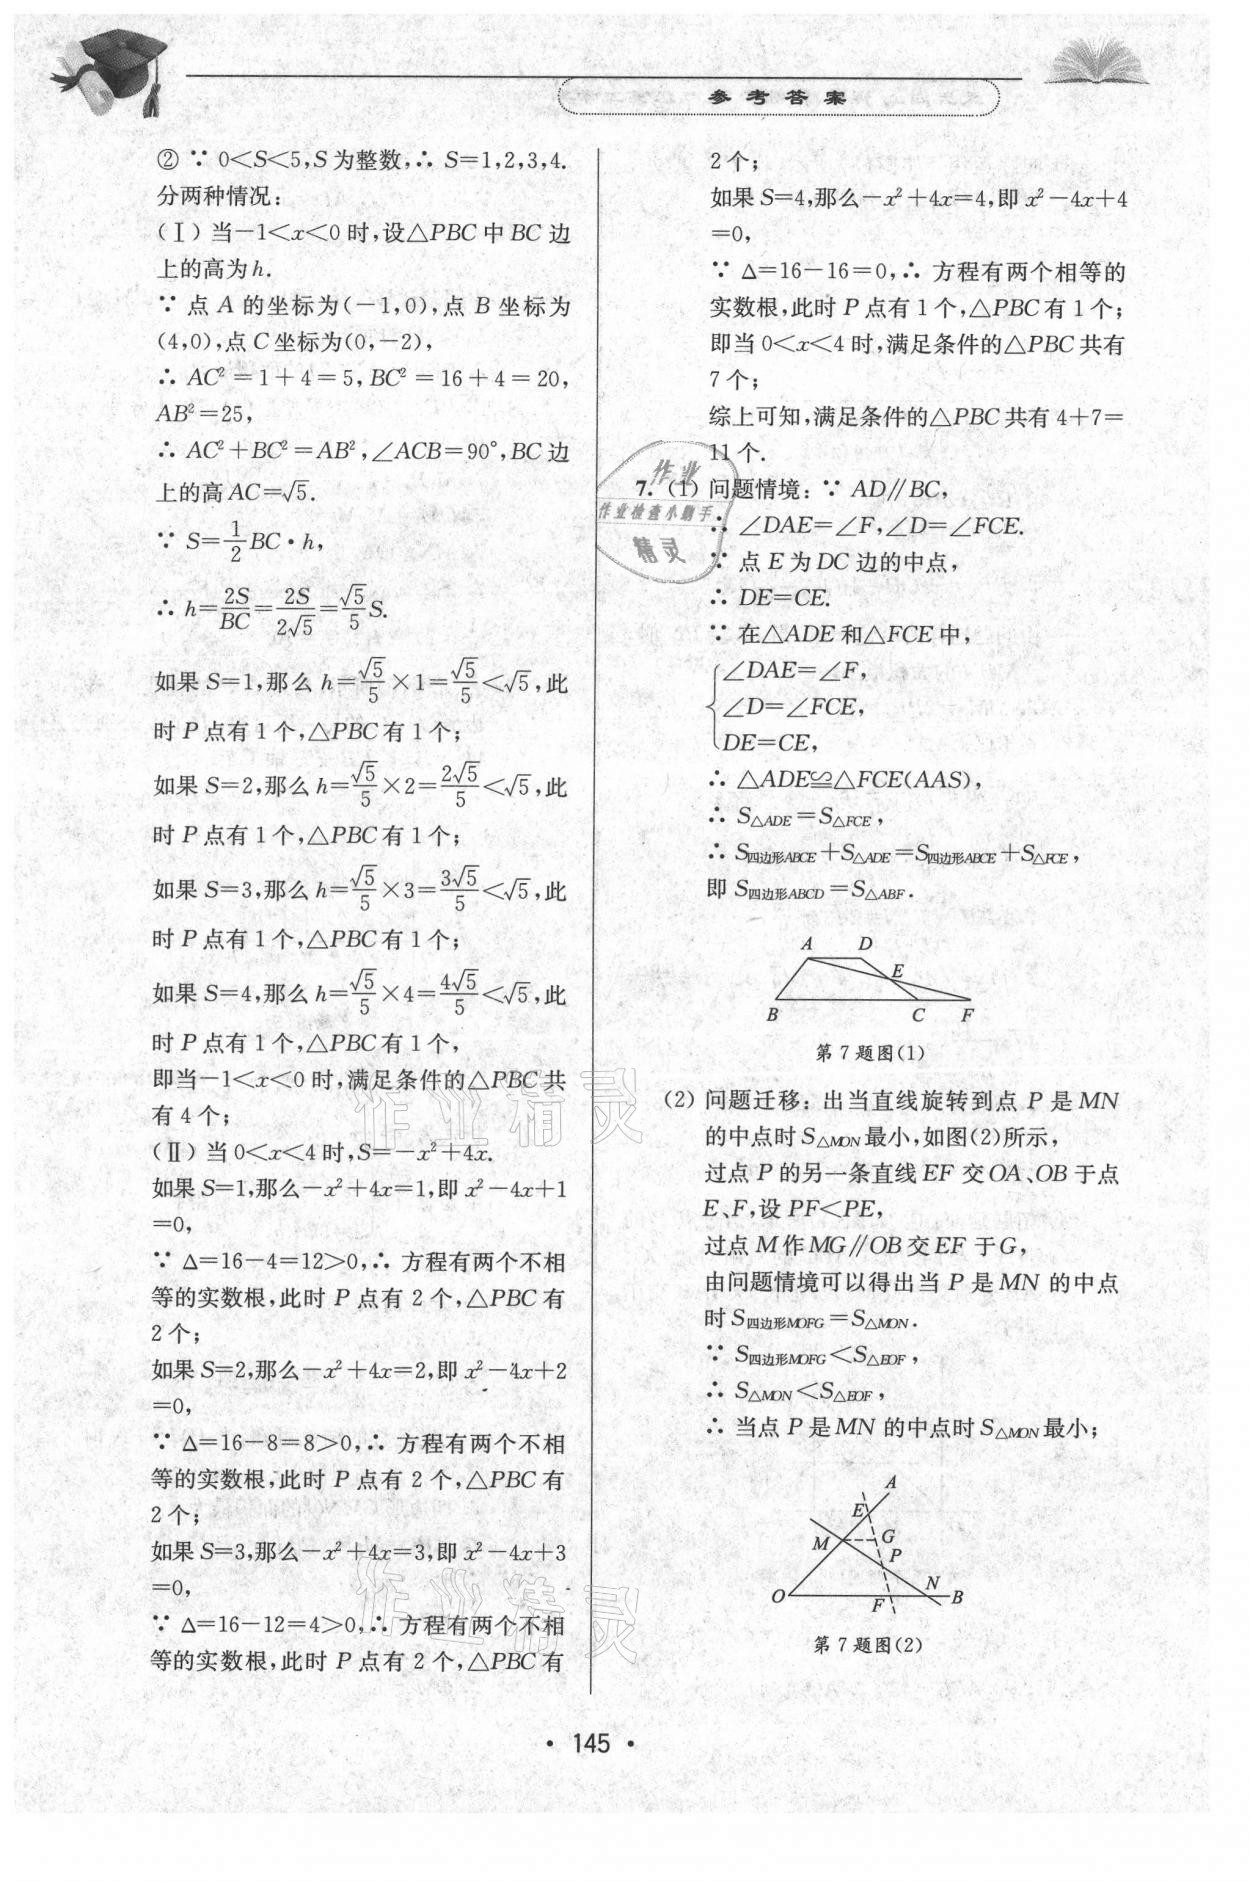 参考答案
② ∵ 0<S<5,S为整数,∴ S=1,2,3,4.
分两种情况:
(Ⅰ)当-1<x<0时,设△PBC中BC边
上的高为h.
∵ 点A的坐标为(-1,0),点B坐标为
(4,0),点C坐标为(0,-2),
∴ AC²=1+4=5,BC²=16+4=20,
AB²=25,
∴ AC²+BC²=AB²,∠ACB=90°,BC边
上的高AC=√5.
∵ S=1/2 BC·h,
∴ h=2S/BC=2S/2√5=√5/5 S.
如果S=1,那么h=√5/5×1=√5/5<√5,此
时P点有1个,△PBC有1个;
如果S=2,那么h=√5/5×2=2√5/5<√5,此
时P点有1个,△PBC有1个;
如果S=3,那么h=√5/5×3=3√5/5<√5,此
时P点有1个,△PBC有1个;
如果S=4,那么h=√5/5×4=4√5/5<√5,此
时P点有1个,△PBC有1个,
即当-1<x<0时,满足条件的△PBC共
有4个;
(Ⅱ)当0<x<4时,S=-x²+4x.
如果S=1,那么-x²+4x=1,即x²-4x+1
=0,
∵ Δ=16-4=12>0,∴ 方程有两个不相
等的实数根,此时P点有2个,△PBC有
2个;
如果S=2,那么-x²+4x=2,即x²-4x+2
=0,
∵ Δ=16-8=8>0,∴ 方程有两个不相
等的实数根,此时P点有2个,△PBC有
2个;
如果S=3,那么-x²+4x=3,即x²-4x+3
=0,
∵ Δ=16-12=4>0,∴ 方程有两个不相
等的实数根,此时P点有2个,△PBC有
2个;
如果S=4,那么-x²+4x=4,即x²-4x+4
=0,
∵ Δ=16-16=0,∴ 方程有两个相等的
实数根,此时P点有1个,△PBC有1个;
即当0<x<4时,满足条件的△PBC共有
7个;
综上可知,满足条件的△PBC共有4+7=
11个.
7.(1)问题情境:∵ AD∥BC,
∴ ∠DAE=∠F,∠D=∠FCE.
∵ 点E为DC边的中点,
∴ DE=CE.
∵ 在△ADE和△FCE中,
∠DAE=∠F,
∠D=∠FCE,
DE=CE,
∴ △ADE≌△FCE(AAS),
∴ S△ADE=S△FCE,
∴ S四边形ABCE+S△ADE=S四边形ABCE+S△FCE,
即S四边形ABCD=S△ABF.
A D
E
B C F
第7题图(1)
(2)问题迁移:出当直线旋转到点P是MN
的中点时S△MON最小,如图(2)所示,
过点P的另一条直线EF交OA、OB于点
E、F,设PF<PE,
过点M作MG∥OB交EF于G,
由问题情境可以得出当P是MN的中点
时S四边形MOFG=S△MON.
∵ S四边形MOFG<S△EOF,
∴ S△MON<S△EOF,
∴ 当点P是MN的中点时S△MON最小;
A
E
M G
P
N
O F B
第7题图(2)
作业
作业检查小助手
精灵
作业精灵
作业精灵
• 145 •